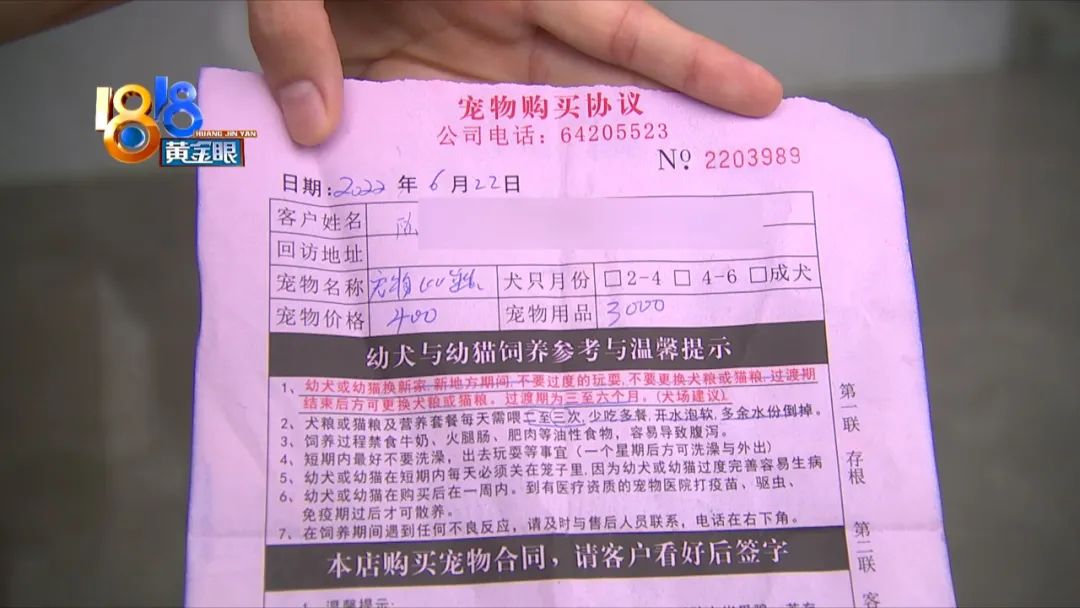 1818
HUANG JIN YAN
黄金眼
宠物购买协议
公司电话：64205523
No. 2203989
日期：2022年6月22日
客户姓名 陈
回访地址
宠物名称 宠物 犬只月份 □2-4 □4-6 □成犬
宠物价格 400 宠物用品 3000
幼犬与幼猫饲养参考与温馨提示
1、幼犬或幼猫换新家、新地方期间，不要过度的玩耍，不要更换犬粮或猫粮，过渡期
结束后方可更换犬粮或猫粮。过渡期为三至六个月。(犬场建议)。
2、犬粮或猫粮及营养套餐每天需喂二至三次，少吃多餐，开水泡软，多余水份倒掉。
3、饲养过程禁食牛奶、火腿肠、肥肉等油性食物，容易导致腹泻。
4、短期内最好不要洗澡，出去玩耍等事宜（一个星期后方可洗澡与外出）
5、幼犬或幼猫在短期内每天必须关在笼子里，因为幼犬或幼猫过度完善容易生病
6、幼犬或幼猫在购买后在一周内。到有医疗资质的宠物医院打疫苗、驱虫、
免疫期过后才可散养。
7、在饲养期间遇到任何不良反应，请及时与售后人员联系，电话在右下角。
本店购买宠物合同，请客户看好后签字
1、温馨提示：
第一联 存根
第二联 客